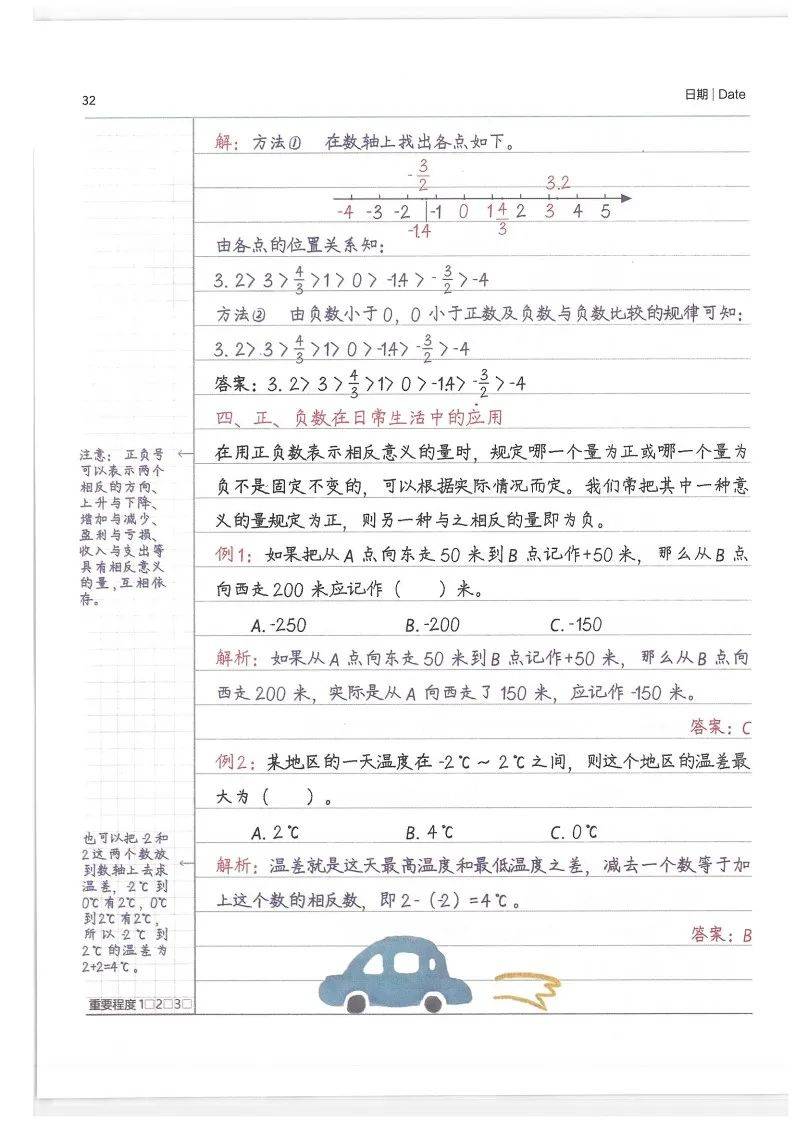 32
日期 | Date
解：方法① 在数轴上找出各点如下。
-3/2 3.2
-4 -3 -2 -1 0 1 4/3 2 3 4 5
-1.4
由各点的位置关系知：
3.2>3>4/3>1>0>-1.4>-3/2>-4
方法② 由负数小于0，0小于正数及负数与负数比较的规律可知：
3.2>3>4/3>1>0>-1.4>-3/2>-4
答案：3.2>3>4/3>1>0>-1.4>-3/2>-4
四、正、负数在日常生活中的应用
在用正负数表示相反意义的量时，规定哪一个量为正或哪一个量为
负不是固定不变的，可以根据实际情况而定。我们常把其中一种意
义的量规定为正，则另一种与之相反的量即为负。
注意：正负号
可以表示两个
相反的方向、
上升与下降、
增加与减少、
盈利与亏损、
收入与支出等
具有相反意义
的量，互相依
存。
例1：如果把从A点向东走50米到B点记作+50米，那么从B点
向西走200米应记作（ ）米。
A.-250 B.-200 C.-150
解析：如果从A点向东走50米到B点记作+50米，那么从B点向
西走200米，实际是从A向西走了150米，应记作-150米。
答案：C
例2：某地区的一天温度在-2℃～2℃之间，则这个地区的温差最
大为（ ）。
A.2℃ B.4℃ C.0℃
解析：温差就是这天最高温度和最低温度之差，减去一个数等于加
上这个数的相反数，即2-(-2)=4℃。
答案：B
也可以把-2和
2这两个数放
到数轴上去求
温差，-2℃到
0℃有2℃，0℃
到2℃有2℃，
所以-2℃到
2℃的温差为
2+2=4℃。
重要程度 1□2□3□